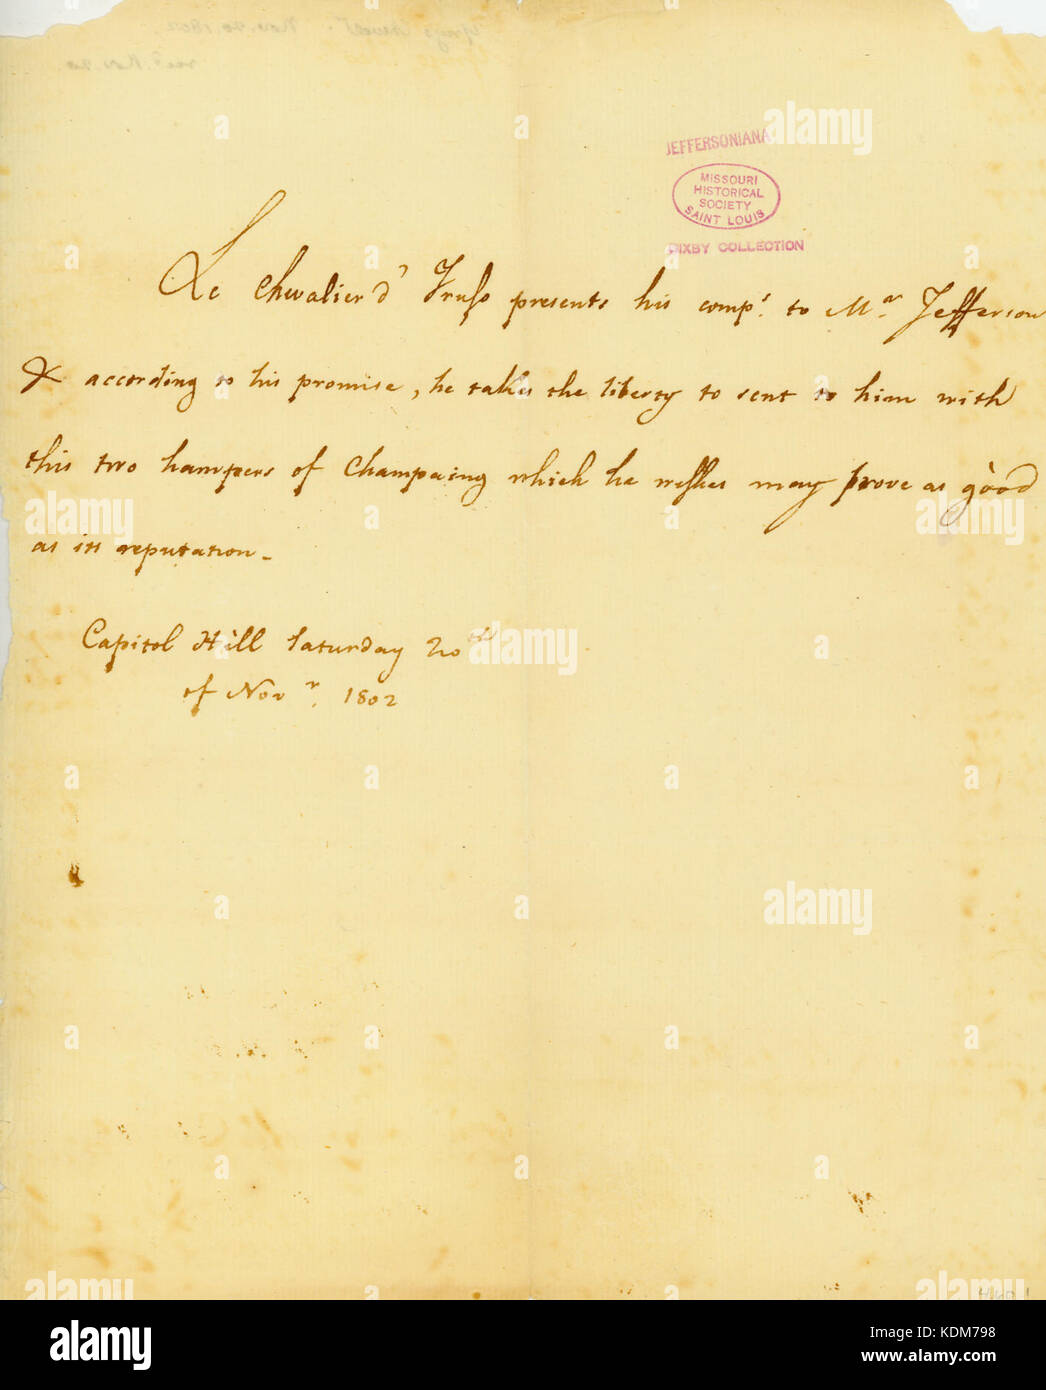 JEFFERSONIANA
MISSOURI
HISTORICAL
SOCIETY
SAINT LOUIS
BIXBY COLLECTION
Le Chevalier d' Frujo presents his compts. to Mr. Jefferson
& according to his promise, he takes the liberty to sent to him with
this two hampers of Champaing which he wishes may prove as good
as its reputation_
Capitol Hill Saturday 20th
of Novr. 1802
alamy
Image ID: KDM798
www.alamy.com